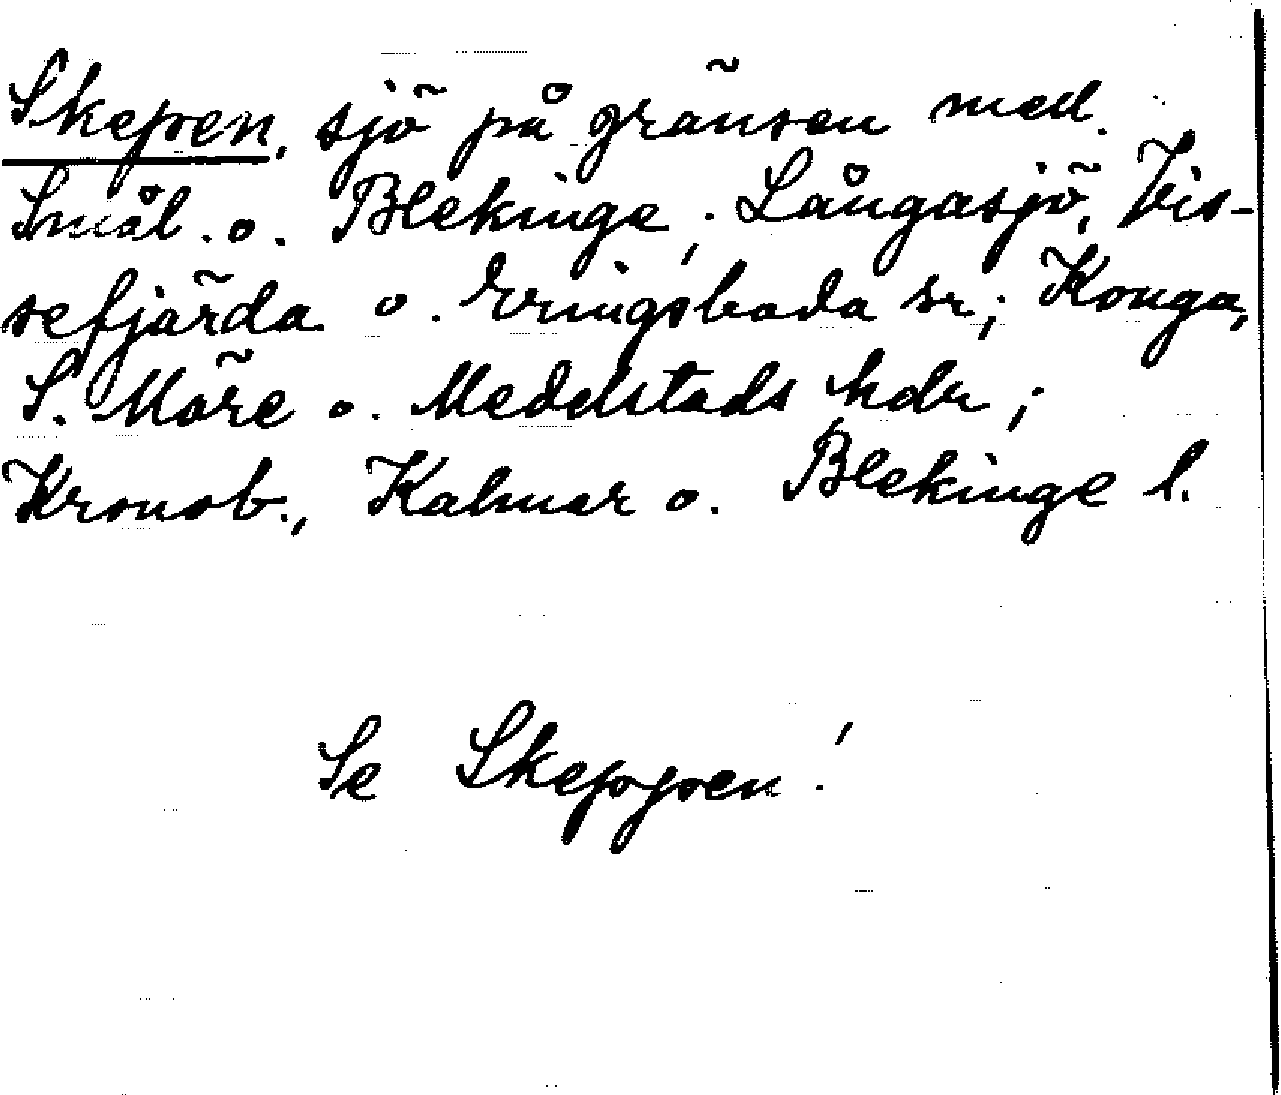 Skepen, sjö på gränsen med.
Smål. o. Blekinge; Långasjö, Vis-
sefjärda o. Eringsboda sn; Konga,
S. Möre o. Medelstads hdr;
Kronob., Kalmar o. Blekinge l.
Se Skeppen!